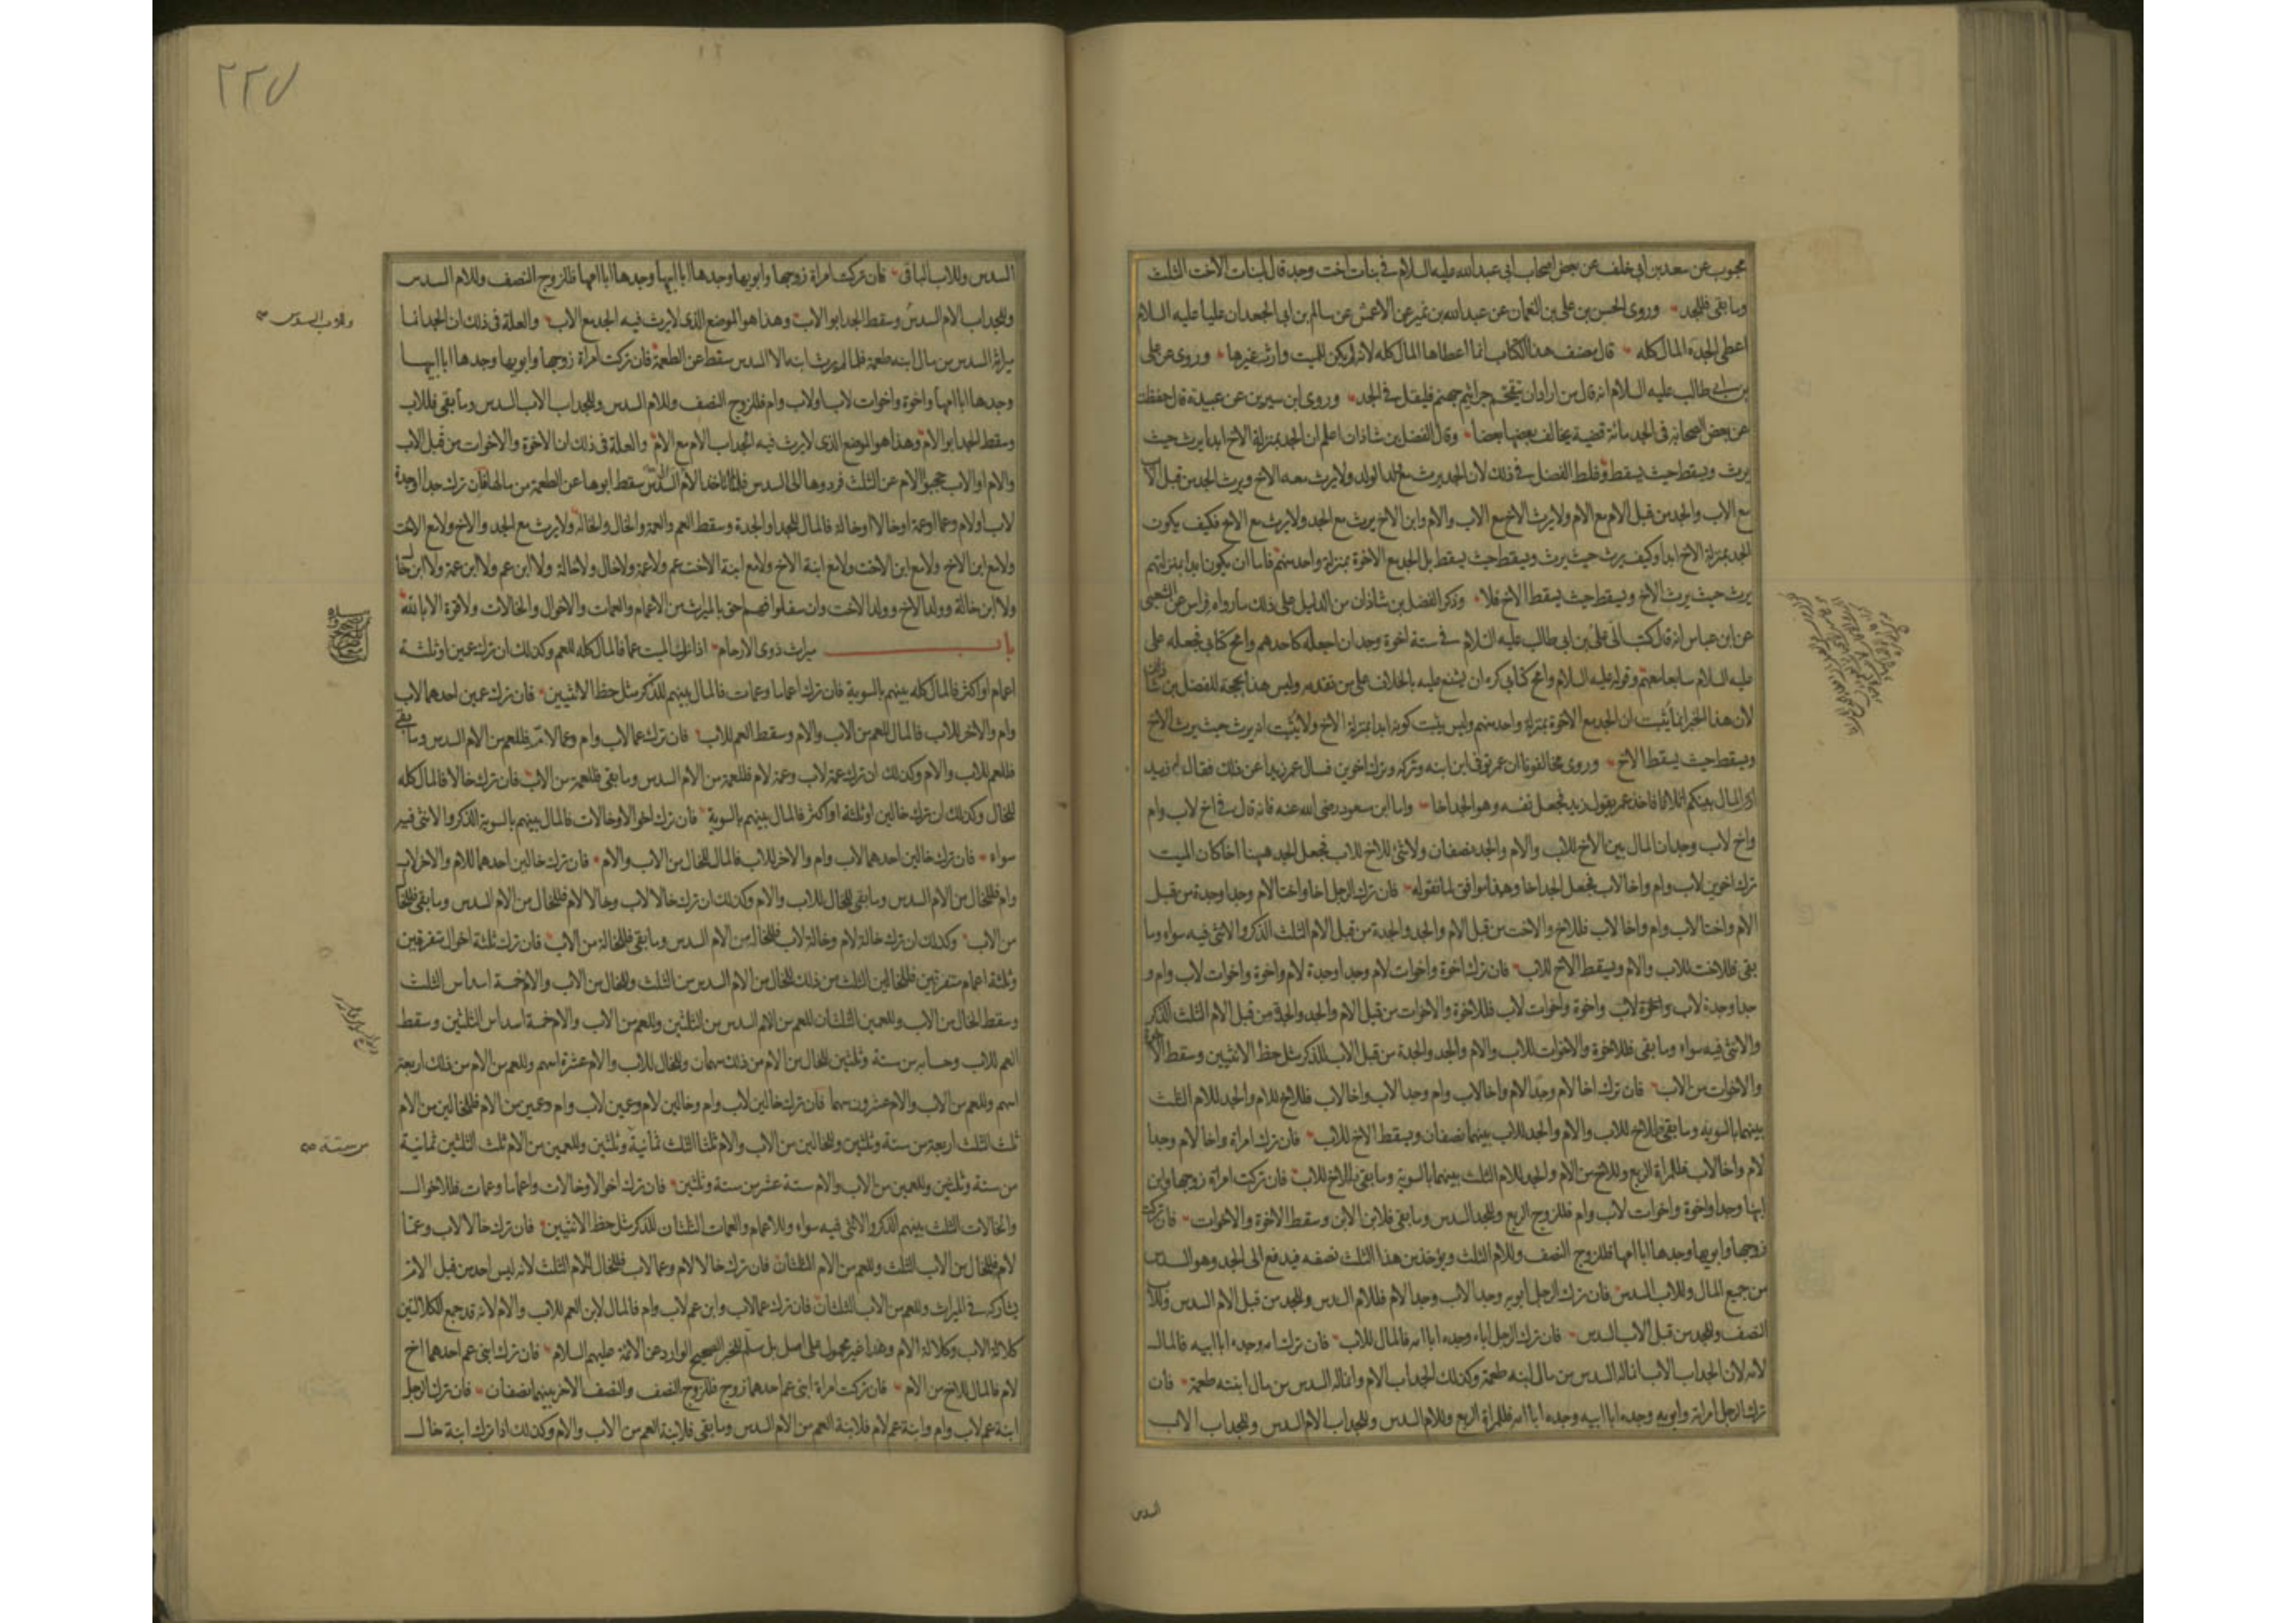 محبوب عن سعد بن ابى خلف عن بعض اصحاب ابى عبد الله عليه السلام فى بنات اخت وجد قال لبنات الاخت الثلث
وما بقى فللجد وروى الحسن بن على بن النعمان عن عبد الله بن نمير عن الاعمش عن سالم بن ابى الجعد ان عليا عليه السلام
اعطى الجدة المال كله قال مصنف هذا الكتاب انما اعطاها المال كله لانه لم يكن للميت وارث غيرها وروى عن على
بن ابى طالب عليه السلام انه قال من اراد ان يتقحم جراثيم جهنم فليقل فى الجد وروى ابن سيرين عن عبيدة قال حفظت
عن بعض الصحابة فى الجد مائة قضية يخالف بعضها بعضا وقال الفضل بن شاذان اعلم ان الجد بمنزلة الاخ ابدا يرث حيث
يرث ويسقط حيث يسقط وغلط الفضل فى ذلك لان الجد يرث مع ولد الولد ولا يرث معه الاخ ويرث الجد من قبل الاب
مع الاب والجد من قبل الام مع الام ولا يرث الاخ مع الاب والام وابن الاخ يرث مع الجد ولا يرث مع الاخ فكيف يكون
الجد بمنزلة الاخ ابدا وكيف يرث حيث يرث ويسقط حيث يسقط بل الجد مع الاخوة بمنزلة واحد منهم فاما ان يكون ابدا بمنزلتهم
يرث حيث يرث الاخ ويسقط حيث يسقط الاخ فلا وذكر الفضل بن شاذان من الدليل على ذلك ما رواه فراس عن الشعبى
عن ابن عباس انه قال كتب الى على بن ابى طالب عليه السلام فى ستة اخوة وجد ان اجعله كاحدهم وامح كتابى فجعله على
عليه السلام سابعا معهم وقوله عليه السلام وامح كتابى كره ان يشنع عليه بالخلاف على من تقدمه وليس هذا بحجة للفضل بن شاذان
لان هذا الخبر انما يثبت ان الجد مع الاخوة بمنزلة واحد منهم وليس يثبت كونه ابدا بمنزلة الاخ ولا يثبت انه يرث حيث يرث الاخ
ويسقط حيث يسقط الاخ وروى مخالفونا ان عمر توفى ابن ابنه وتركه وترك اخوين فسال عمر زيدا عن ذلك فقال له زيد
ارى المال بينكم اثلاثا فاخذ عمر بقول زيد فجعل نفسه وهو الجد اخا واما ابن مسعود رضى الله عنه فانه قال فى اخ لاب وام
واخ لاب وجد ان المال بين الاخ للاب والام والجد نصفان ولا شئ للاخ للاب فجعل الجد ههنا اخا كان الميت
ترك اخوين لاب وام واخا لاب فجعل الجد اخا وهذا موافق لما نقوله فان ترك الرجل اخا واختا لام وجدا وجدة من قبل
الام واختا لاب وام واخا لاب فللاخ والاخت من قبل الام والجد والجدة من قبل الام الثلث الذكر والانثى فيه سواء وما
بقى فللاخت للاب والام ويسقط الاخ للاب فان ترك اخوة واخوات لام وجدا وجدة لام واخوة واخوات لاب وام و
جدا وجدة لاب واخوة واخوات لاب فللاخوة والاخوات من قبل الام والجد والجدة من قبل الام الثلث الذكر
والانثى فيه سواء وما بقى فللاخوة والاخوات للاب والام والجد والجدة من قبل الاب للذكر مثل حظ الانثيين وسقط الاخوة
والاخوات من الاب فان ترك اخا لام وجدا لام واخا لاب وام وجدا لاب واخا لاب فللاخ للام والجد للام الثلث
بينهما بالسوية وما بقى فللاخ للاب والام والجد للاب بينهما نصفان ويسقط الاخ للاب فان ترك امراة واخا لام وجدا
لام واخا لاب فللمراة الربع وللاخ من الام والجد للام الثلث بينهما بالسوية وما بقى فللاخ للاب فان تركت امراة زوجها وابن
ابنها وجدا واخوة واخوات لاب وام فللزوج الربع وللجد السدس وما بقى فلابن الابن وسقط الاخوة والاخوات فان تركت
زوجها وابويها وجدها ابا امها فللزوج النصف وللام الثلث ويؤخذ من هذا الثلث نصفه فيدفع الى الجد وهو السدس
من جميع المال وللاب السدس فان ترك الرجل ابويه وجدا لاب وجدا لام فللام السدس وللجد من قبل الام السدس وللاب
النصف وللجد من قبل الاب السدس فان ترك الرجل اباه وجده ابا امه فالمال للاب فان ترك امه وجده ابا ابيه فالمال
لامه لان الجد اب الاب انما له السدس من مال ابنه طعمة وكذلك الجد اب الام وانما له السدس من مال ابنته طعمة فان
ترك الرجل امراة وابويه وجده ابا ابيه وجده ابا امه فللمراة الربع وللام السدس وللجد اب الام السدس وللجد اب الاب
السدس
٢٢٧
السدس وللاب الباقى فان تركت امراة زوجها وابويها وجدها ابا ابيها وجدها ابا امها فللزوج النصف وللام السدس
وللجد اب الام السدس وسقط الجد ابو الاب وهذا هو الموضع الذى لا يرث فيه الجد مع الاب والعلة فى ذلك ان الجد انما
وللاب السدس صح
ميراثه السدس من مال ابنه طعمة فلما لم يرث ابنه الا السدس سقط عن الطعمة فان تركت امراة زوجها وابويها وجدها ابا ابيها
وجدها ابا امها واخوة واخوات لاب او لاب وام فللزوج النصف وللام السدس وللجد اب الاب السدس وما بقى فللاب
وسقط الجد ابو الام وهذا هو الموضع الذى لا يرث فيه الجد اب الام مع الام والعلة فى ذلك ان الاخوة والاخوات من قبل الاب
والام او الاب حجبوا الام عن الثلث فردوها الى السدس فلما تاخذ الام السدس سقط ابوها عن الطعمة من مالها فان ترك جدا او جدة
لاب او لام وعما او عمة او خالا او خالة فالمال للجد او الجدة وسقط العم والعمة والخال والخالة ولا يرث مع الجد والاخ ولا مع الاخت
ولا مع ابن الاخ ولا مع ابن الاخت ولا مع ابنة الاخ ولا مع ابنة الاخت عم ولا عمة ولا خال ولا خالة ولا ابن عم ولا ابن عمة ولا ابن خال
ولا ابن خالة وولد الاخ وولد الاخت وان سفلوا فهم احق بالميراث من الاعمام والعمات والاخوال والخالات ولا قوة الا بالله
باب ميراث ذوى الارحام اذا ترك الميت عما فالمال كله للعم وكذلك ان ترك عمين او ثلثة
اعمام او اكثر فالمال كله بينهم بالسوية فان ترك اعماما وعمات فالمال بينهم للذكر مثل حظ الانثيين فان ترك عمين احدهما لاب
وام والاخر للاب فالمال للعم من الاب والام وسقط العم للاب فان ترك عما لاب وام وعما لام فللعم من الام السدس وما بقى
فللعم للاب والام وكذلك ان ترك عمة لاب وعمة لام فللعمة من الام السدس وما بقى فللعمة من الاب فان ترك خالا فالمال كله
للخال وكذلك ان ترك خالين او ثلثة او اكثر فالمال بينهم بالسوية فان ترك اخوالا وخالات فالمال بينهم بالسوية الذكر والانثى فيه
سواء فان ترك خالين احدهما لاب وام والاخر للاب فالمال للخال من الاب والام فان ترك خالين احدهما للام والاخر لاب
وام فللخال من الام السدس وما بقى للخال للاب والام وكذلك ان ترك خالا لاب وخالا لام فللخال من الام السدس وما بقى فللخال
من الاب وكذلك ان ترك خالة لام وخالة لاب فللخالة من الام السدس وما بقى فللخالة من الاب فان ترك ثلثة اخوال متفرقين
وثلثة اعمام متفرقين فللخالين الثلث من ذلك للخال من الام السدس من الثلث وللخال من الاب والام خمسة اسداس الثلث
وسقط الخال من الاب وللعمين الثلثان للعم من الام السدس من الثلثين وللعم من الاب والام خمسة اسداس الثلثين وسقط
العم للاب وحسابه من ستة وثلثين للخال من الام من ذلك سهمان وللخال للاب والام عشرة اسهم وللعم من الام من ذلك اربعة
اسهم وللعم من الاب والام عشرون سهما فان ترك خالين لاب وام وخالين لام وعمين لاب وام وعمين من الام فللخالين من الام
ثلث الثلث اربعة من ستة وثلثين وللخالين من الاب والام ثلثا الثلث ثمانية وثلثين وللعمين من الام ثلث الثلثين ثمانية
من ستة صح
من ستة وثلثين وللعمين من الاب والام ستة عشر من ستة وثلثين فان ترك اخوالا وخالات واعماما وعمات فللاخوال
والخالات الثلث بينهم الذكر والانثى فيه سواء وللاعمام والعمات الثلثان للذكر مثل حظ الانثيين فان ترك خالا لاب وعما
لام فللخال من الاب الثلث وللعم من الام الثلثان فان ترك خالا لام وعما لاب فللخال للام الثلث لانه ليس احد من قبل الام
يشاركه فى الميراث وللعم من الاب الثلثان فان ترك عما لاب وابن عم لاب وام فالمال لابن العم للاب والام لانه قد جمع الكلالتين
كلالة الاب وكلالة الام وهذا غير محمول على اصل بل سلم للخبر الصحيح الوارد عن الائمة عليهم السلام فان ترك ابنى عم احدهما اخ
لام فالمال للاخ من الام فان تركت امراة ابنى عم احدهما زوج فللزوج النصف والنصف الاخر بينهما نصفان فان ترك الرجل
ابنة عم لاب وام وابنة عم لام فلابنة العم من الام السدس وما بقى فلابنة العم من الاب والام وكذلك اذا ترك ابنة خال